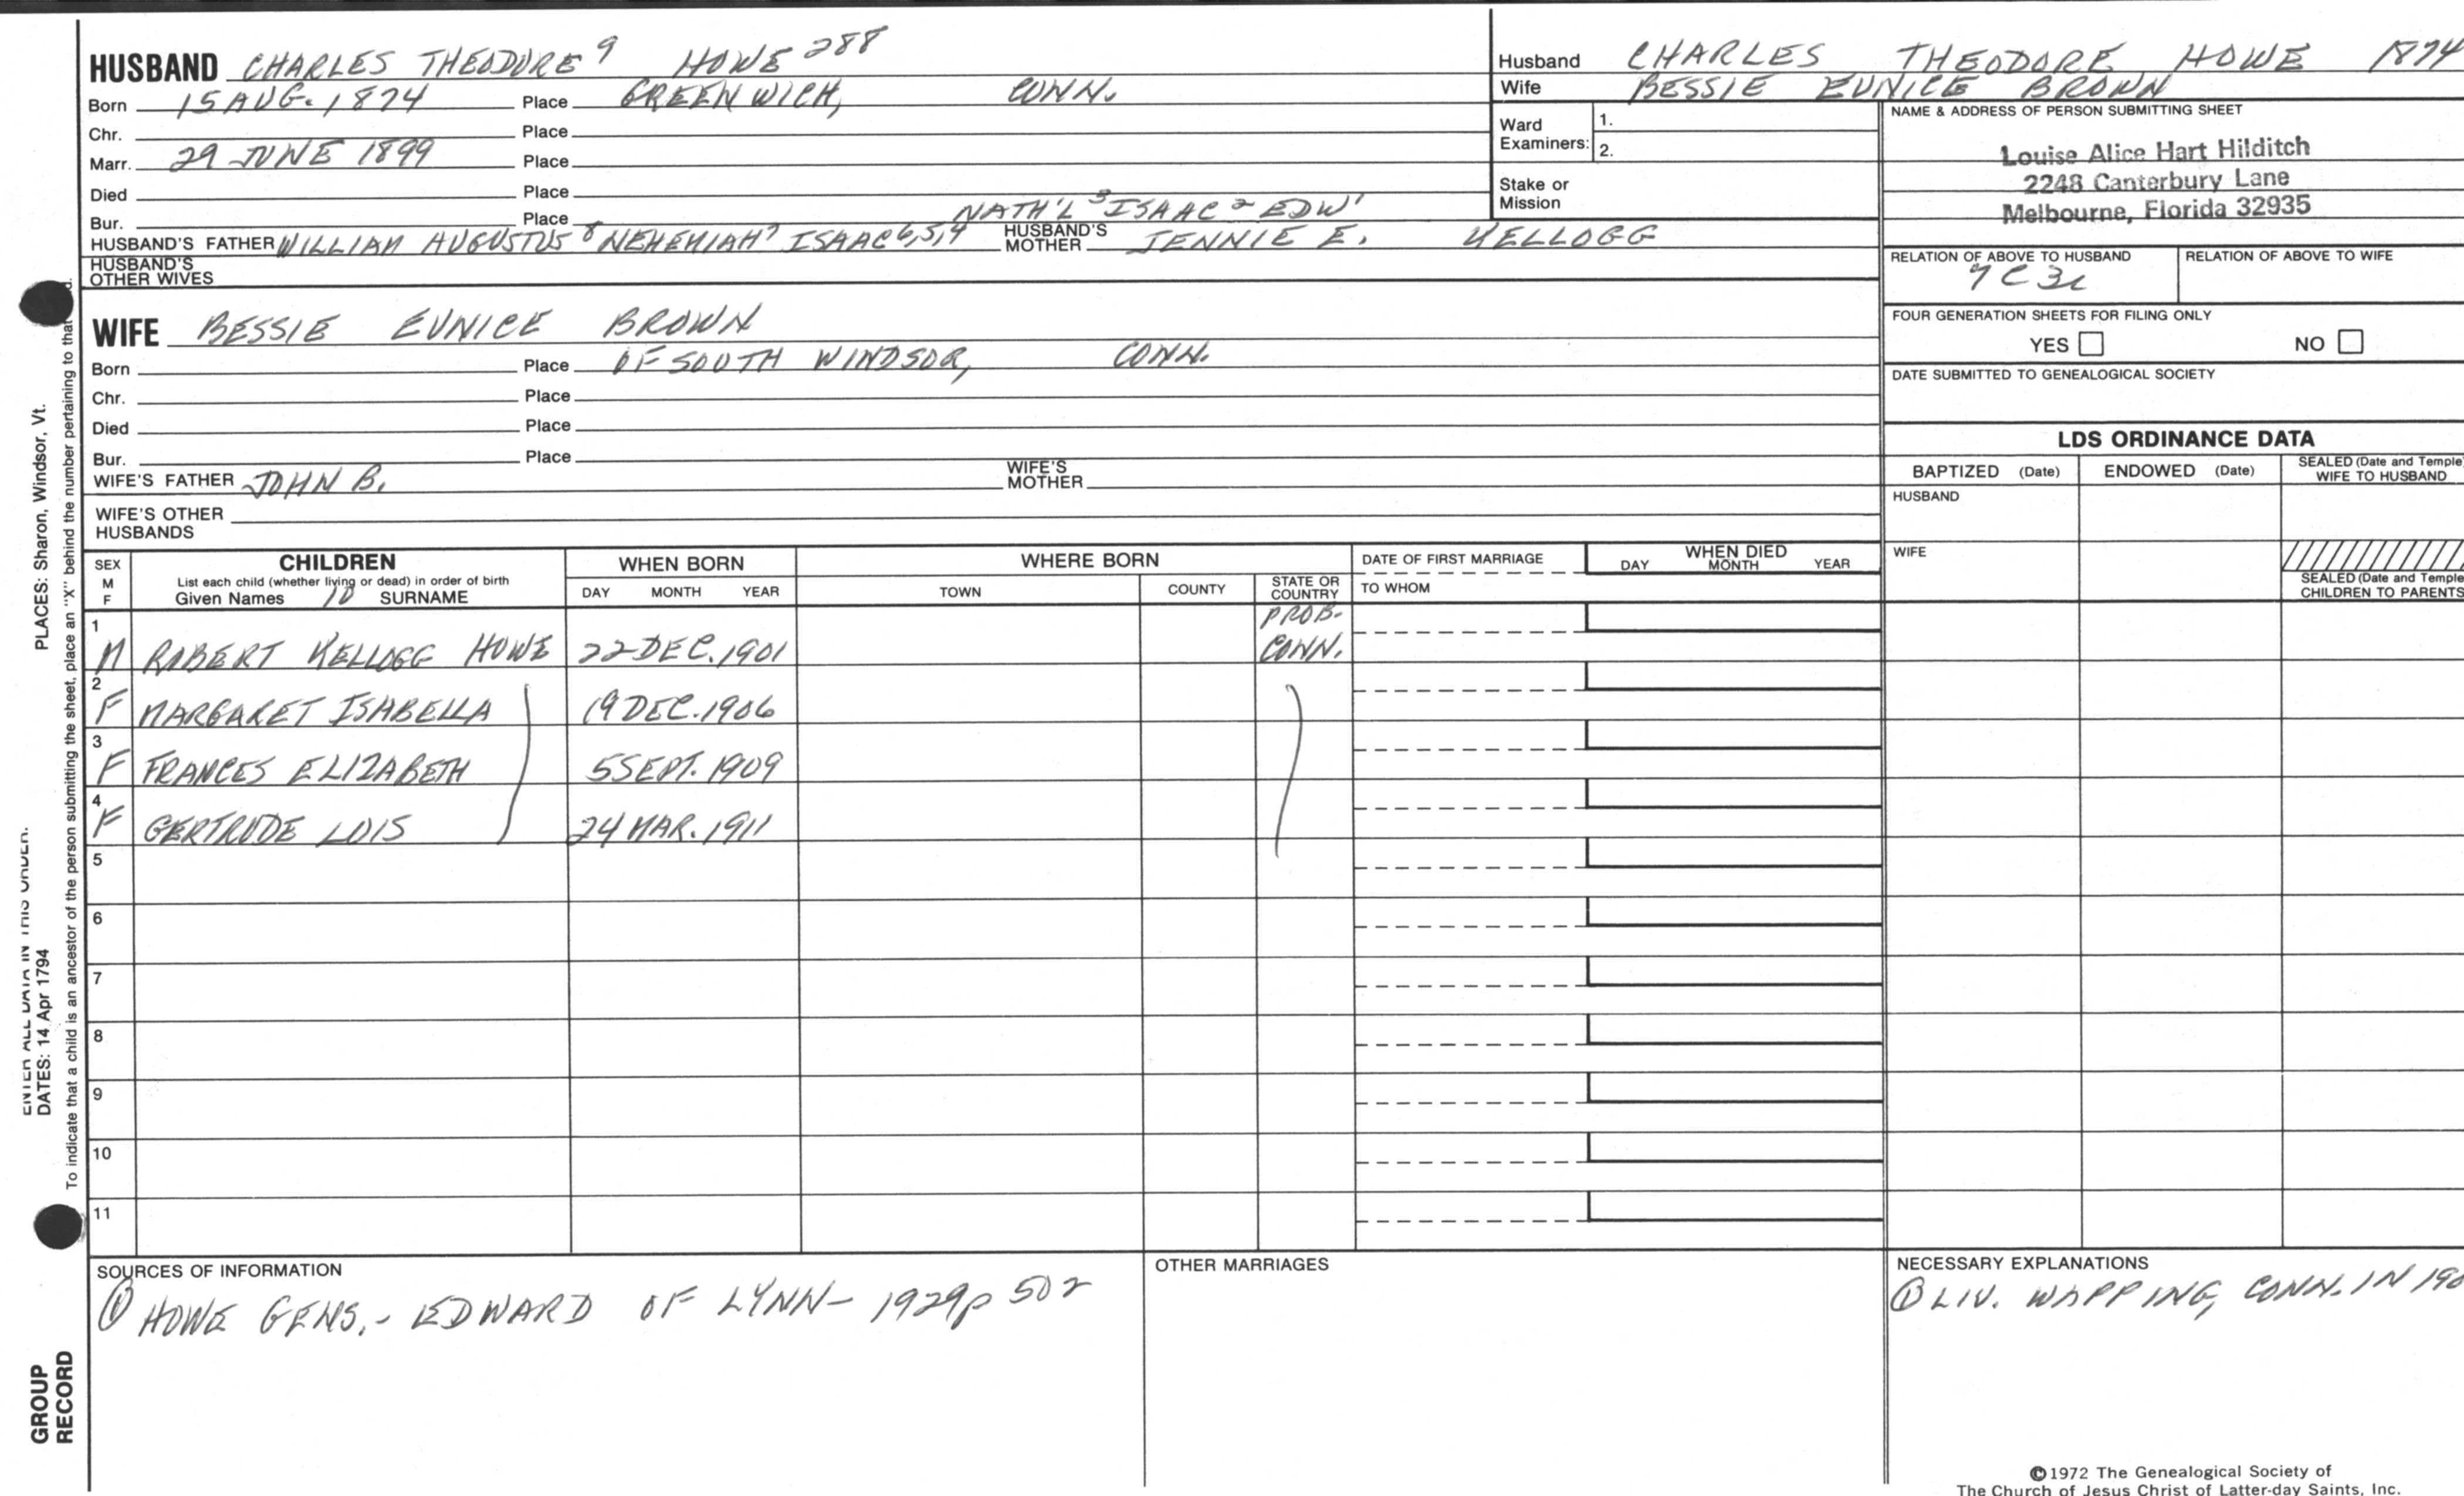 HUSBAND CHARLES THEODORE 9 HOWE 288
Born 15 AUG. 1874 Place GREENWICH, CONN.
Chr. Place
Marr. 29 JUNE 1899 Place
Died Place
Bur. Place NATH'L 3 ISAAC 2 EDW 1
HUSBAND'S FATHER WILLIAM AUGUSTUS 8 NEHEMIAH 7 ISAAC 6,5,4 HUSBAND'S MOTHER JENNIE E. KELLOGG
HUSBAND'S OTHER WIVES
WIFE BESSIE EUNICE BROWN
Born Place OF SOUTH WINDSOR, CONN.
Chr. Place
Died Place
Bur. Place
WIFE'S FATHER JOHN B. WIFE'S MOTHER
WIFE'S OTHER HUSBANDS
Husband CHARLES THEODORE HOWE 1874
Wife BESSIE EUNICE BROWN
Ward Examiners: 1.
2.
Stake or Mission
NAME & ADDRESS OF PERSON SUBMITTING SHEET
Louise Alice Hart Hilditch
2248 Canterbury Lane
Melbourne, Florida 32935
RELATION OF ABOVE TO HUSBAND RELATION OF ABOVE TO WIFE
7C3
FOUR GENERATION SHEETS FOR FILING ONLY
YES NO
DATE SUBMITTED TO GENEALOGICAL SOCIETY
LDS ORDINANCE DATA
BAPTIZED (Date) ENDOWED (Date) SEALED (Date and Temple) WIFE TO HUSBAND
HUSBAND
WIFE
SEALED (Date and Temple) CHILDREN TO PARENTS
SEX M F
CHILDREN
List each child (whether living or dead) in order of birth
Given Names 10 SURNAME
WHEN BORN
DAY MONTH YEAR
WHERE BORN
TOWN COUNTY STATE OR COUNTRY
DATE OF FIRST MARRIAGE
TO WHOM
WHEN DIED
DAY MONTH YEAR
1 M ROBERT KELLOGG HOWE 22 DEC. 1901 PROB. CONN.
2 F MARGARET ISABELLA 19 DEC. 1906
3 F FRANCES ELIZABETH 5 SEPT. 1909
4 F GERTRUDE LOIS 24 MAR. 1911
5
6
7
8
9
10
11
SOURCES OF INFORMATION
① HOWE GENS. - EDWARD OF LYNN - 1929 p 502
OTHER MARRIAGES
NECESSARY EXPLANATIONS
① LIV. WAPPING, CONN. IN 190
©1972 The Genealogical Society of
The Church of Jesus Christ of Latter-day Saints, Inc.
ENTER ALL DATA IN THIS ORDER.
DATES: 14 Apr 1794 PLACES: Sharon, Windsor, Vt.
To indicate that a child is an ancestor of the person submitting the sheet, place an "X" behind the number pertaining to that
GROUP
RECORD